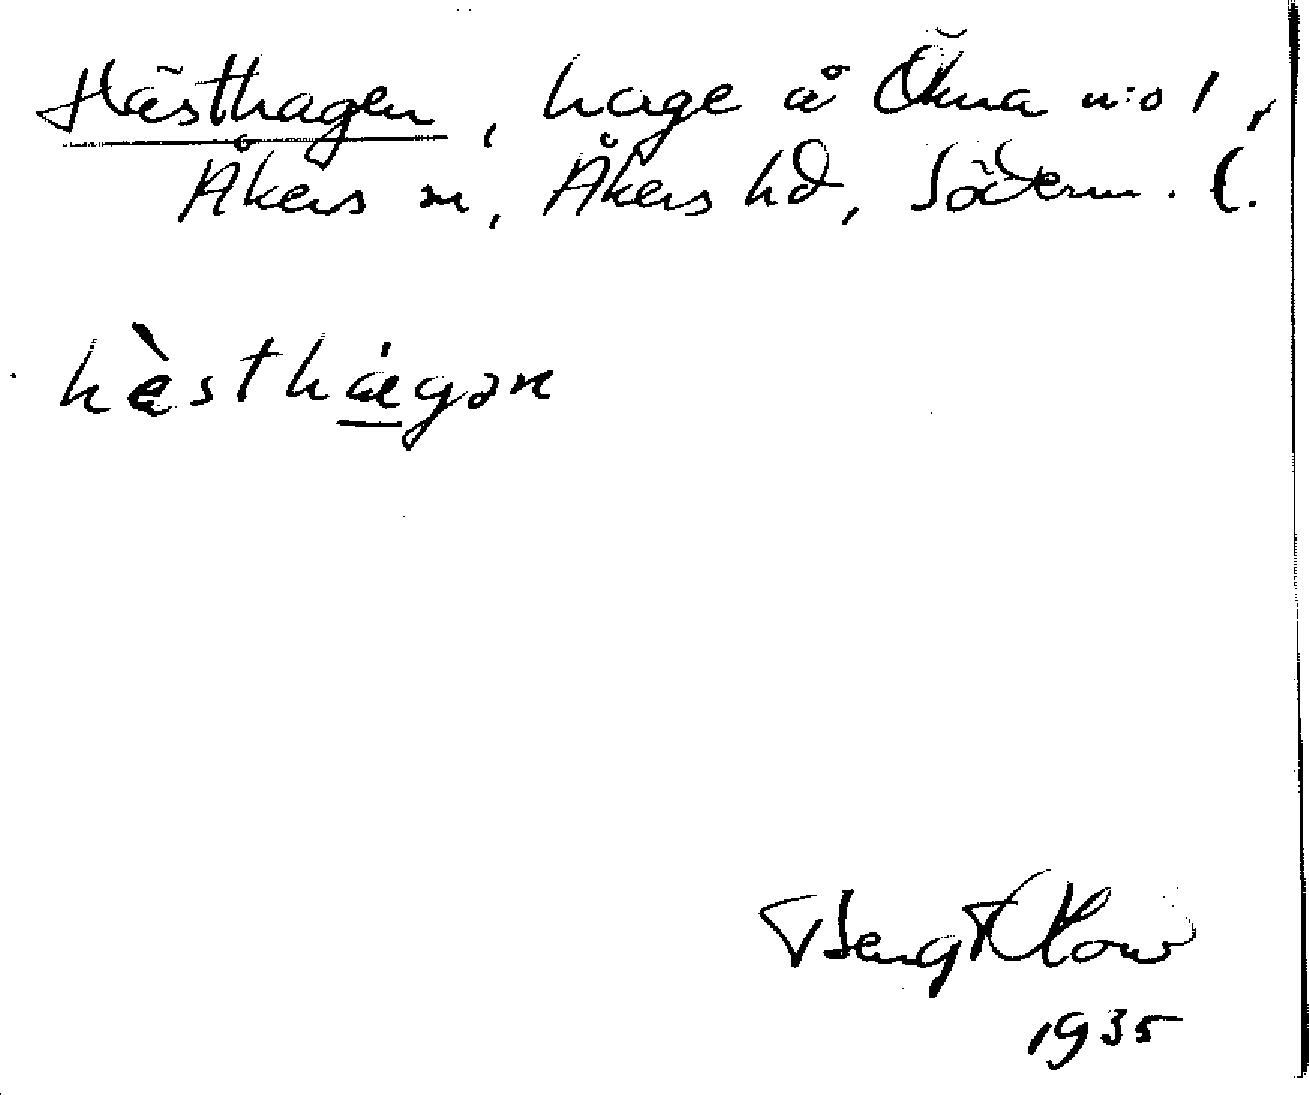 Hästhagen, hage å Ökna n:o 1,
Åkers sn, Åkers hd, Söderm. l.
hὲsthɑ́gən
1935